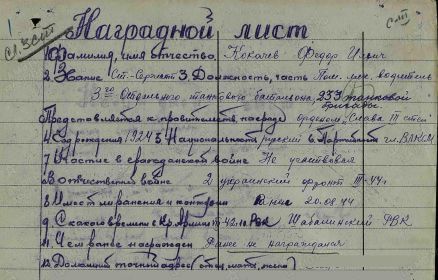 Сл. 3 ст
Наградной лист
1. Фамилия, имя отчество Кокачев Федор Ильич
2. Звание Ст. Сержант 3. Должность, часть Пом. мех. водителя
3го Отдельного танкового батальона 233 танковой бригады
Представляется к правительств. награде орденом "Слава III степ"
4. Год рождения 1924 5. Национальность русский 6. Партийность чл. ВЛКСМ
7. Участие в гражданской войне Не участвовал
В отечественной войне 2 украинский фронт III-44 г.
8. Имеет ли ранения и контузии Ранен 20.08.44
9. С какого времени в Кр. Армии III-42 10. РВК Шабалинский РВК
11. Чем ранее награжден Ранее не награждался
12. Домашний точный адрес (отец, мать, жена)